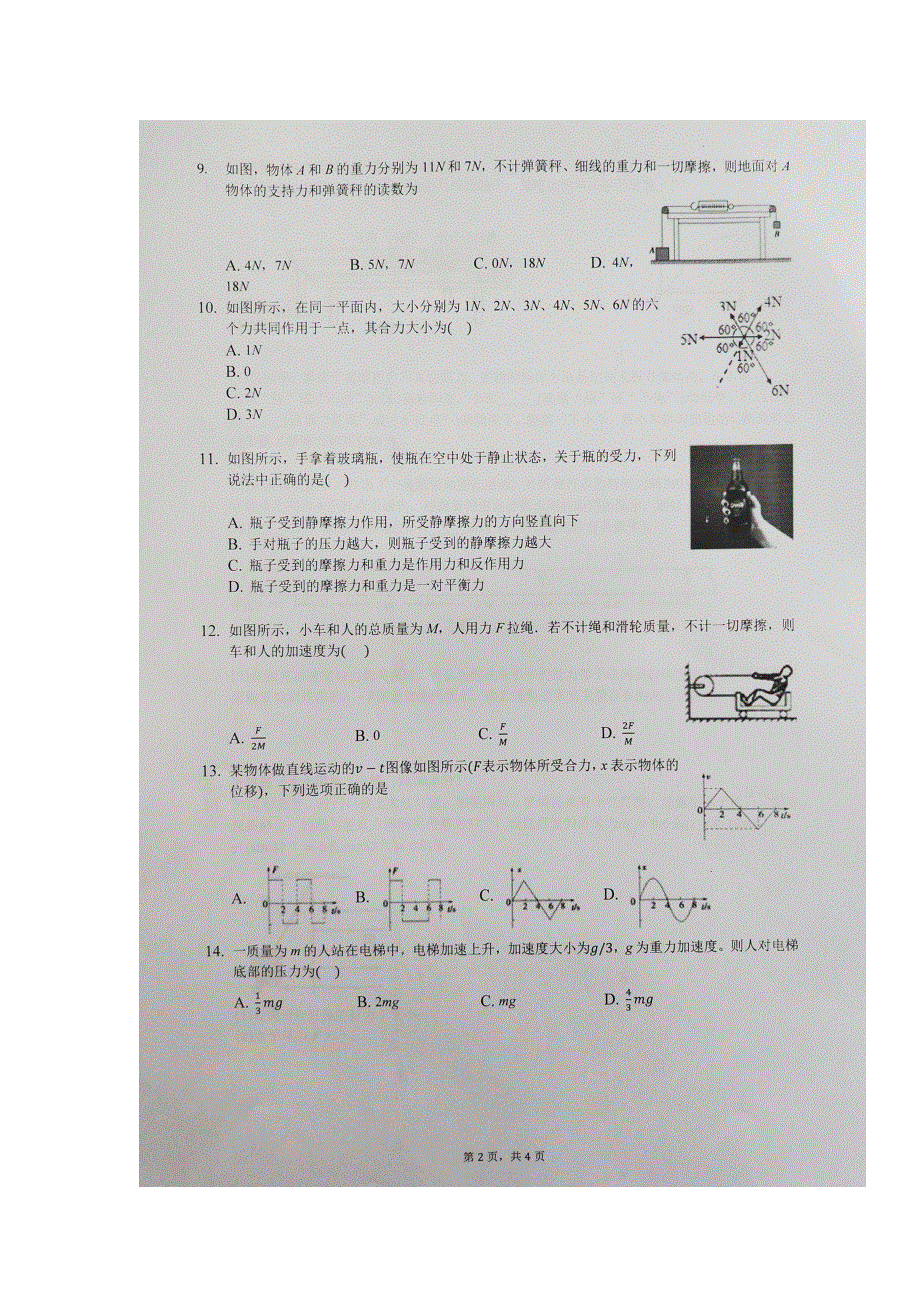 9. 如图，物体 A 和 B 的重力分别为 11N 和 7N，不计弹簧秤、细线的重力和一切摩擦，则地面对 A
物体的支持力和弹簧秤的读数为
A
B
A. 4N，7N B. 5N，7N C. 0N，18N D. 4N，
18N
10. 如图所示，在同一平面内，大小分别为 1N、2N、3N、4N、5N、6N 的六
个力共同作用于一点，其合力大小为( )
A. 1N
B. 0
C. 2N
D. 3N
3N 4N
60°
60° 60°
5N 2N
60° 1N 60°
60°
6N
11. 如图所示，手拿着玻璃瓶，使瓶在空中处于静止状态，关于瓶的受力，下列
说法中正确的是( )
A. 瓶子受到静摩擦力作用，所受静摩擦力的方向竖直向下
B. 手对瓶子的压力越大，则瓶子受到的静摩擦力越大
C. 瓶子受到的摩擦力和重力是作用力和反作用力
D. 瓶子受到的摩擦力和重力是一对平衡力
12. 如图所示，小车和人的总质量为 M，人用力 F 拉绳．若不计绳和滑轮质量，不计一切摩擦，则
车和人的加速度为( )
A. F/2M B. 0 C. F/M D. 2F/M
13. 某物体做直线运动的v − t图像如图所示(F表示物体所受合力，x 表示物体的
位移)，下列选项正确的是
v
0 2 4 6 8 t/s
A. F 0 2 4 6 8 t/s B. F 0 2 4 6 8 t/s C. x 0 2 4 6 8 t/s D. x 0 2 4 6 8 t/s
14. 一质量为 m 的人站在电梯中，电梯加速上升，加速度大小为g/3，g 为重力加速度。则人对电梯
底部的压力为( )
A. 1/3 mg B. 2mg C. mg D. 4/3 mg
第 2 页，共 4 页